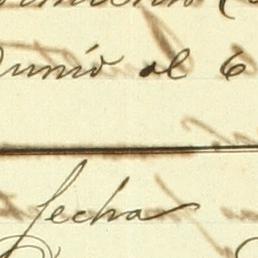 Junio al 6
fecha